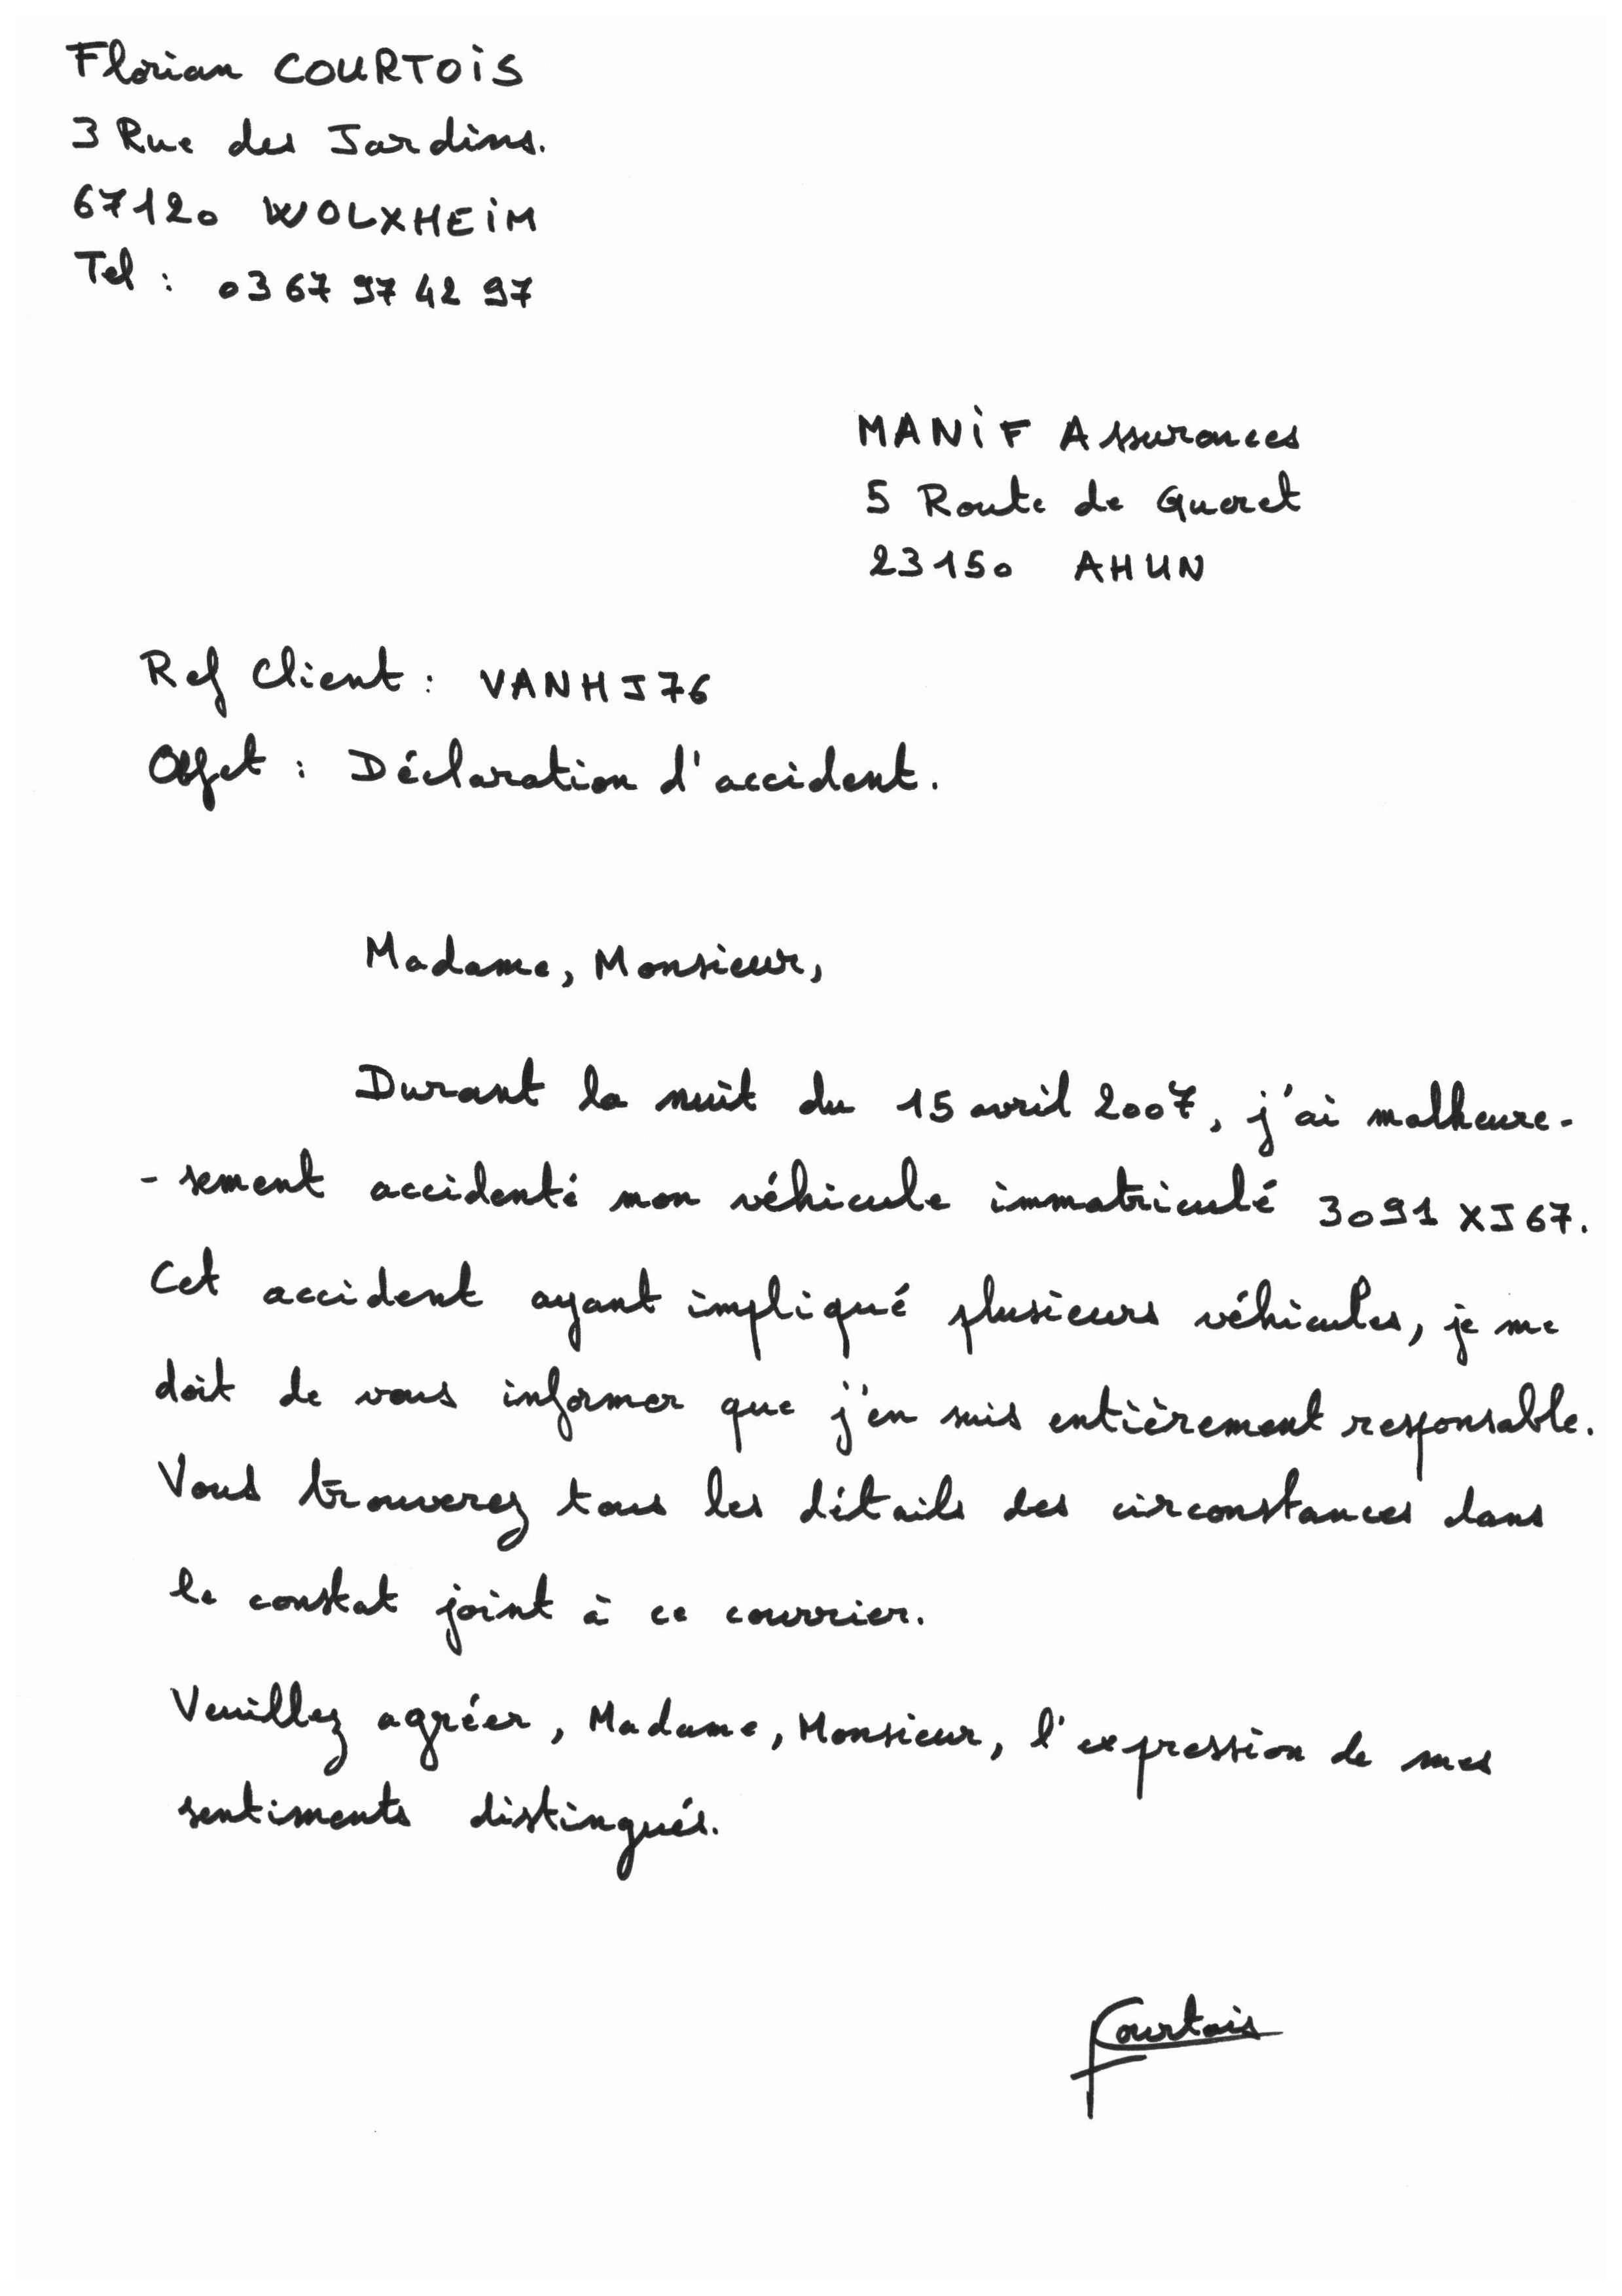 Florian COURTOIS
3 Rue des Jardins.
67120 WOLXHEIM
Tel : 03 67 97 42 97
MANIF Assurances
5 Route de Gueret
23150 AHUN
Ref Client : VANHJ76
Objet : Déclaration d'accident.
Madame, Monsieur,
Durant la nuit du 15 avril 2007, j'ai malheure-
- sement accidenté mon véhicule immatriculé 3091 XJ 67.
Cet accident ayant impliqué plusieurs véhicules, je me
doit de vous informer que j'en suis entièrement responsable.
Vous trouverez tous les détails des circonstances dans
le constat joint à ce courrier.
Veuillez agréer, Madame, Monsieur, l'expression de mes
sentiments distingués.
Courtois